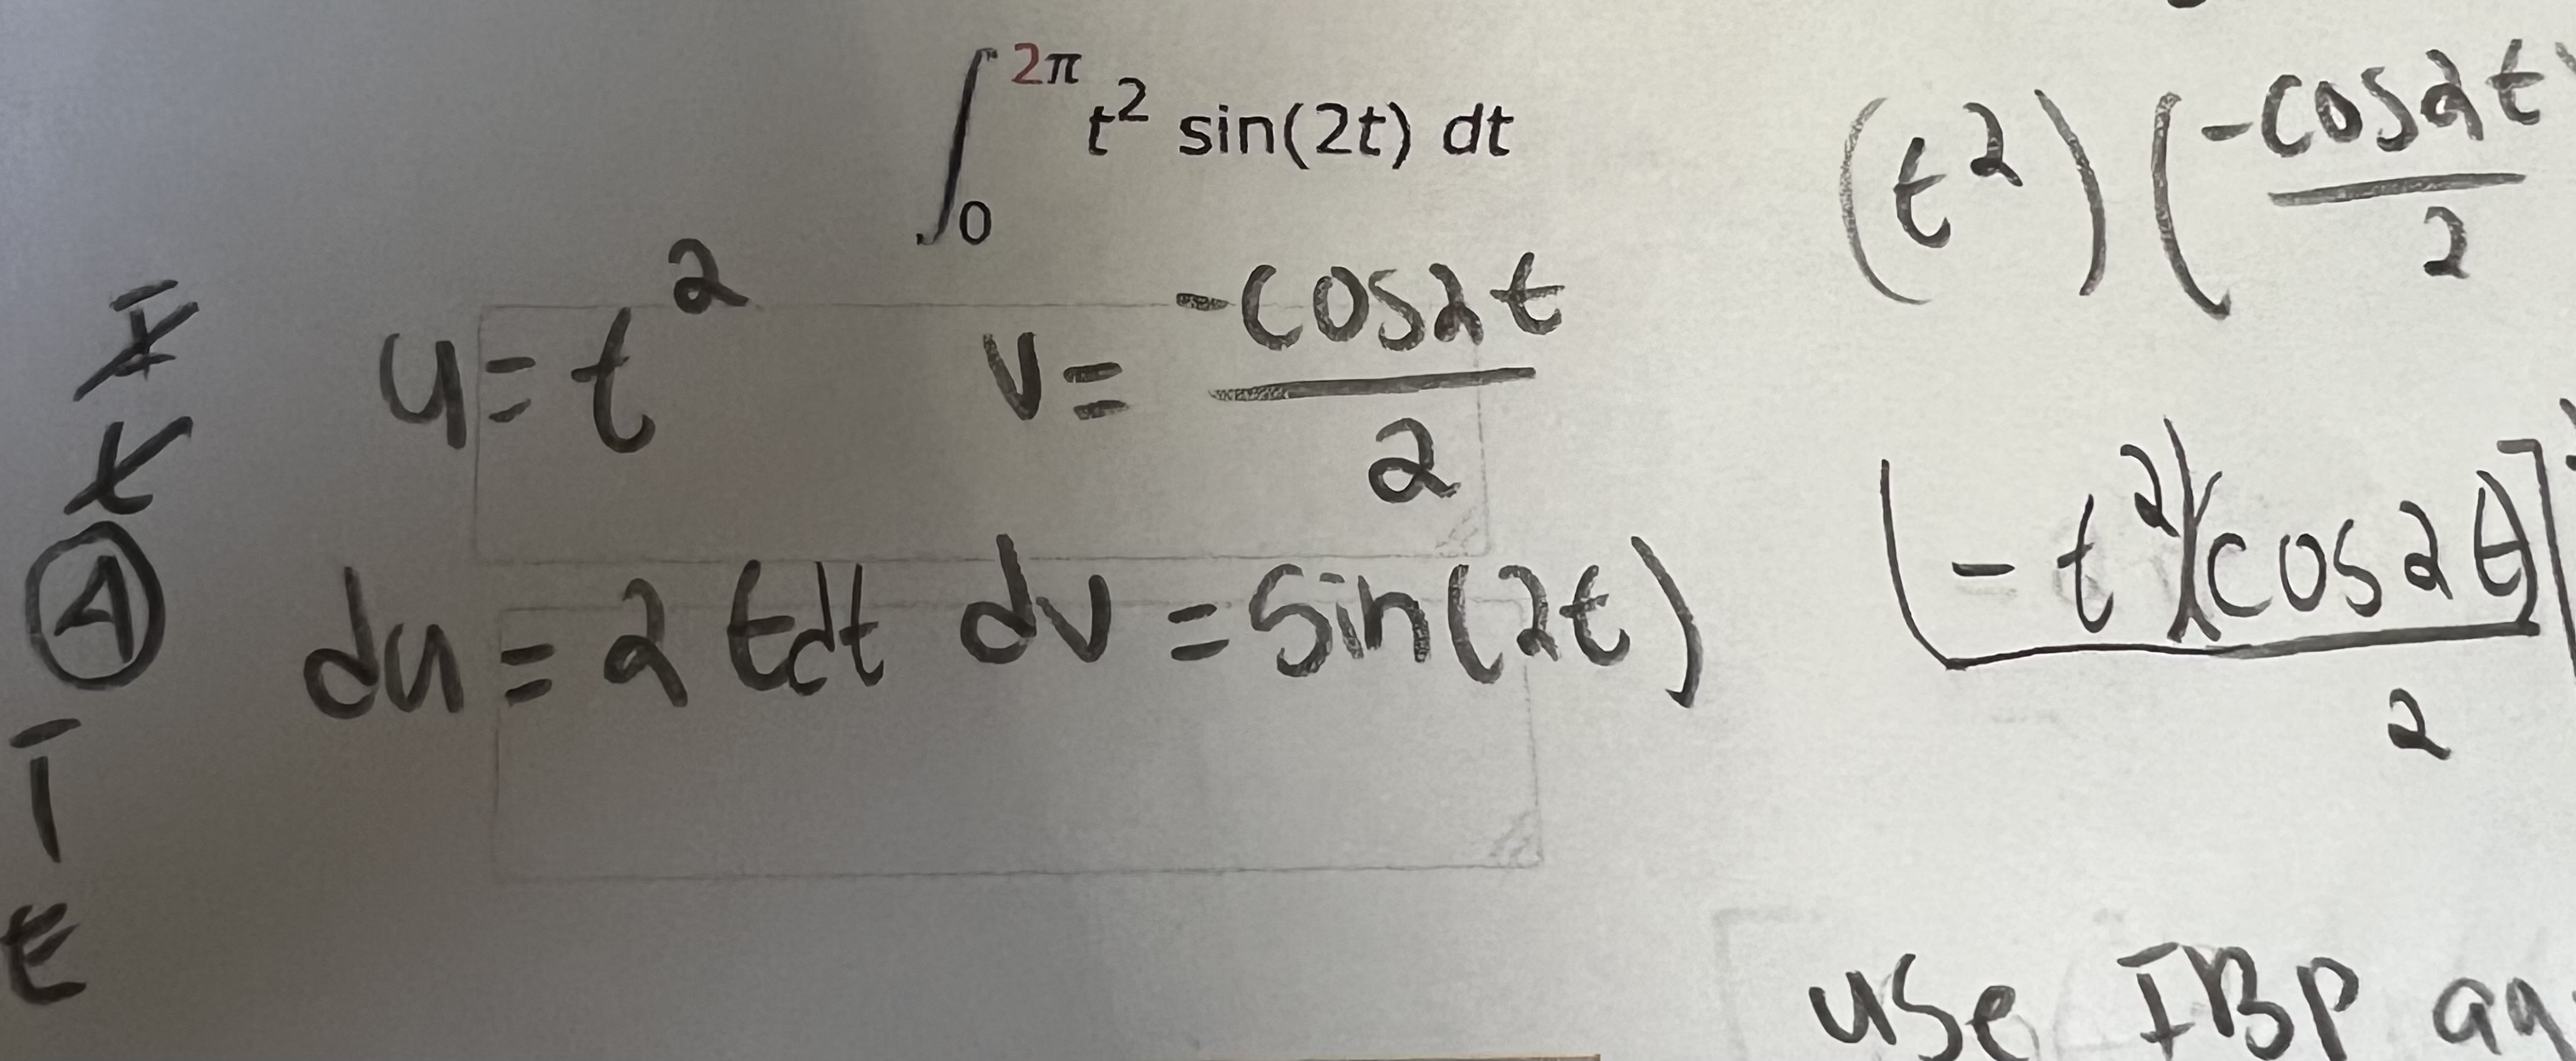 ∫₀^2π t² sin(2t) dt
I
L
A
T
E
u = t²
v = -cos2t / 2
du = 2tdt
dv = sin(2t)
(t²)(-cos2t / 2
[-t²)(cos2t)] / 2
use IBP